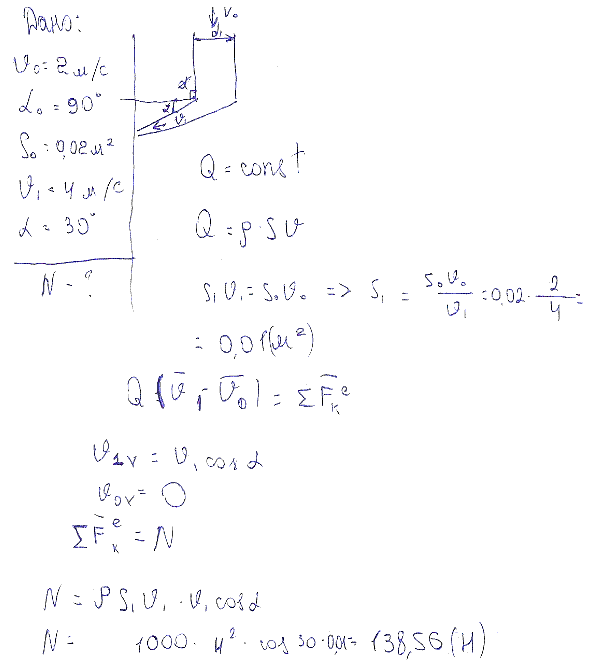 Дано:
v₀
d
v₀ = 2 м/с
α₀ = 90°
S₀ = 0,02 м²
v₁ = 4 м/с
α = 30°
N - ?
α
v₁
Q = const
Q = ρ · S v
S₁ v₁ = S₀ v₀ => S₁ = S₀ v₀ / v₁ = 0,02 · 2 / 4 =
= 0,01 (м²)
Q (v̄₁ - v̄₀) = Σ F̄ₖᵉ
v₁ₓ = v₁ cos α
v₀ₓ = 0
Σ F̄ₖᵉ = N
N = ρ S₁ v₁ · v₁ cos α
N = 1000 · 4² · cos 30 · 0,01 = 138,56 (Н)